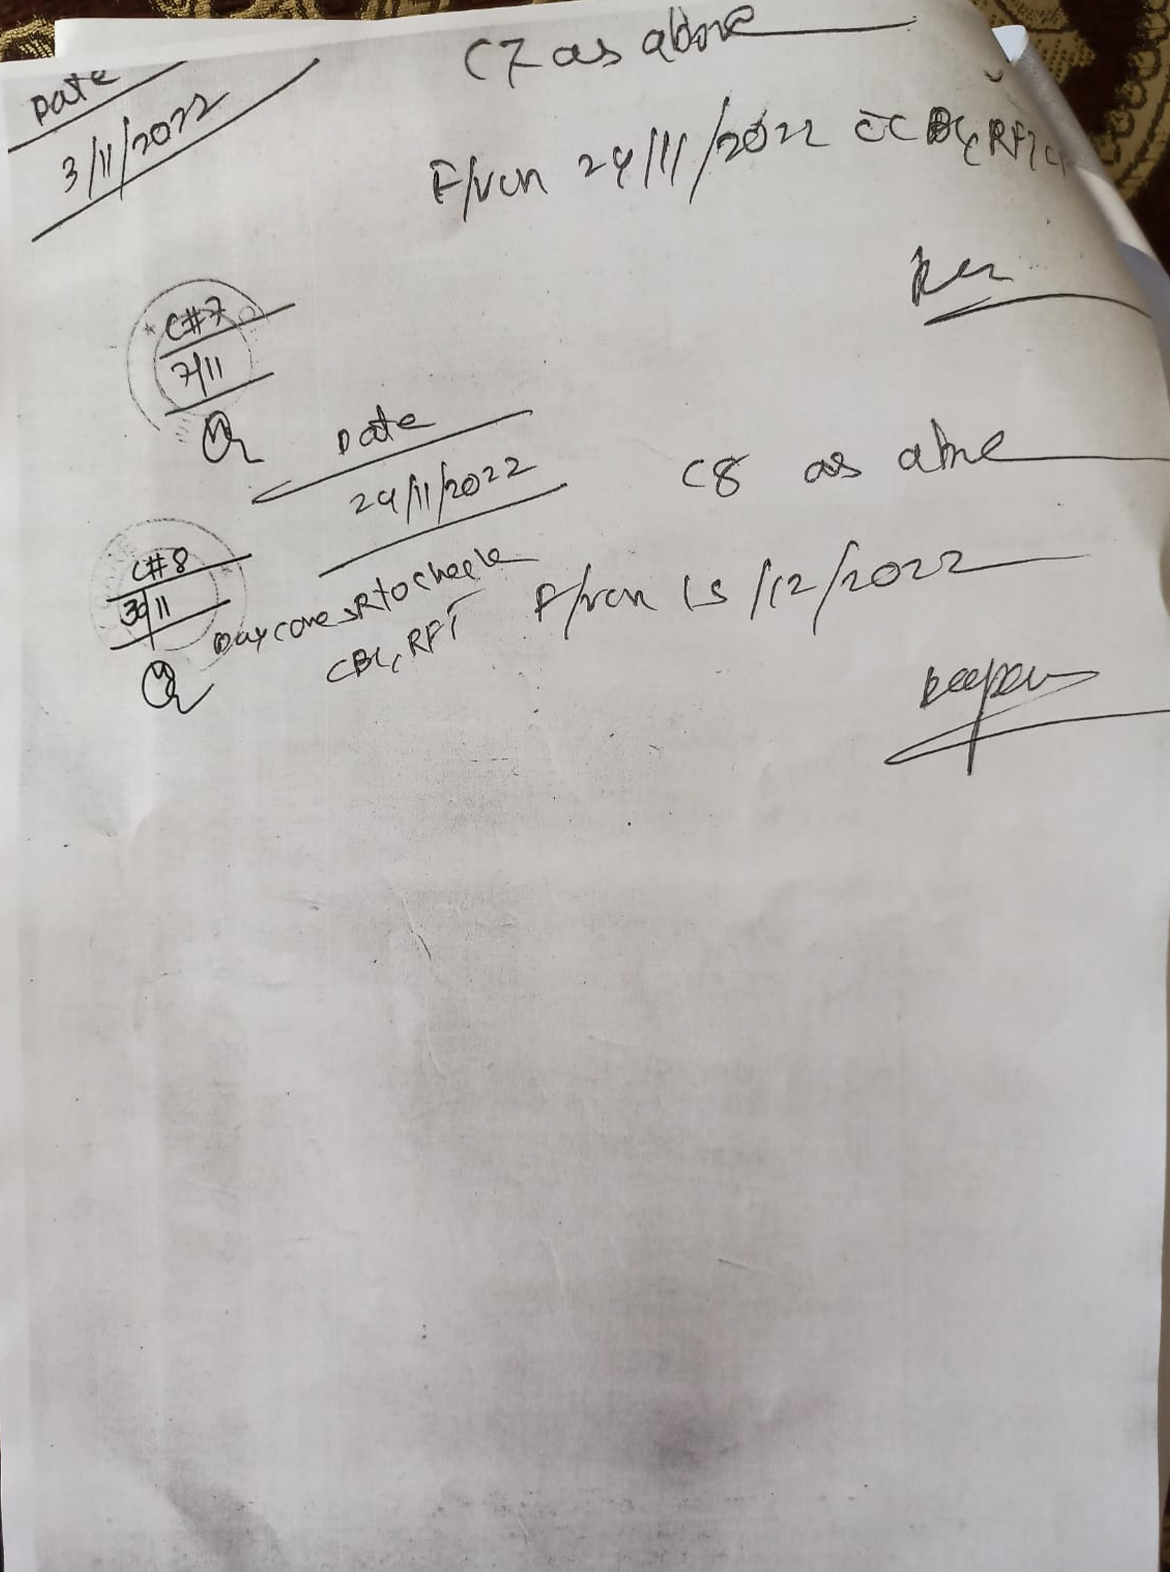 Date
3/11/2022
C7 as above
F/up on 24/11/2022 c̄ CBC, RFT,
C#7
7/11
Date
24/11/2022
C8 as above
C#8
30/11
Daycare SR to check
CBC, RFT
15/12/2022